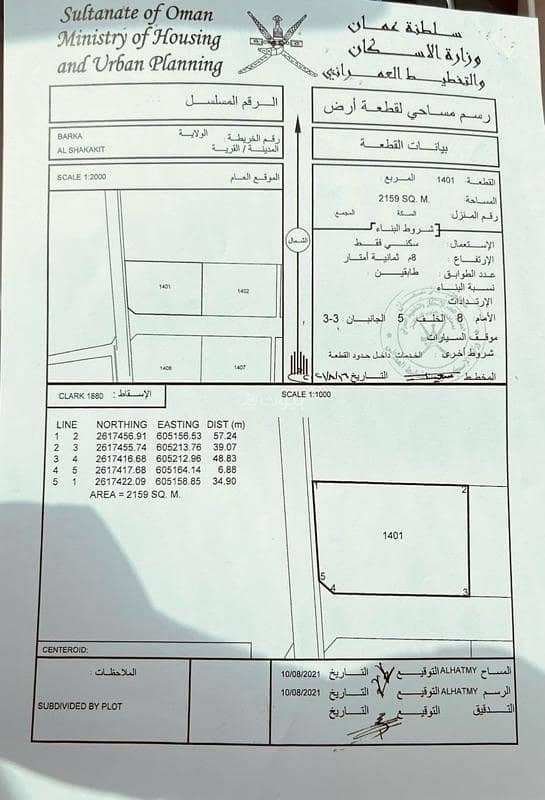 Sultanate of Oman
Ministry of Housing
and Urban Planning
سلطنة عمان
وزارة الاسكان
والتخطيط العمراني
الرقم المسلسل
رسم مساحي لقطعة أرض
BARKA رقم الخريطة : الولاية
AL SHAKAKIT المدينة / القرية :
بيانات القطعة
SCALE 1:2000 الموقع العام
القطعة : 1401 المربع :
المساحة : 2159 SQ. M.
رقم المنزل : السكة المجمع
شروط البناء
الإستعمال : سكني فقط
الإرتفاع : 8م ثمانية أمتار
عدد الطوابق : طابقين
نسبة البناء :
الإرتدادات :
الأمام 8 الخلف 5 الجانبان 3-3
موقف السيارات :
شروط أخرى : الخدمات داخل حدود القطعة
المخطط التاريخ
الشمال
1401
1402
1406
1407
CLARK 1880 الإسقاط :
SCALE 1:1000
LINE NORTHING EASTING DIST (m)
1 2 2617456.91 605156.53 57.24
2 3 2617455.74 605213.76 39.07
3 4 2617416.68 605212.96 48.83
4 5 2617417.68 605164.14 6.88
5 1 2617422.09 605158.85 34.90
AREA = 2159 SQ. M.
1
2
1401
5
4
3
CENTEROID:
الملاحظات :
SUBDIVIDED BY PLOT
المساح ALHATMY التوقيع التاريخ 10/08/2021
الرسم ALHATMY التوقيع التاريخ 10/08/2021
التدقيق التوقيع التاريخ